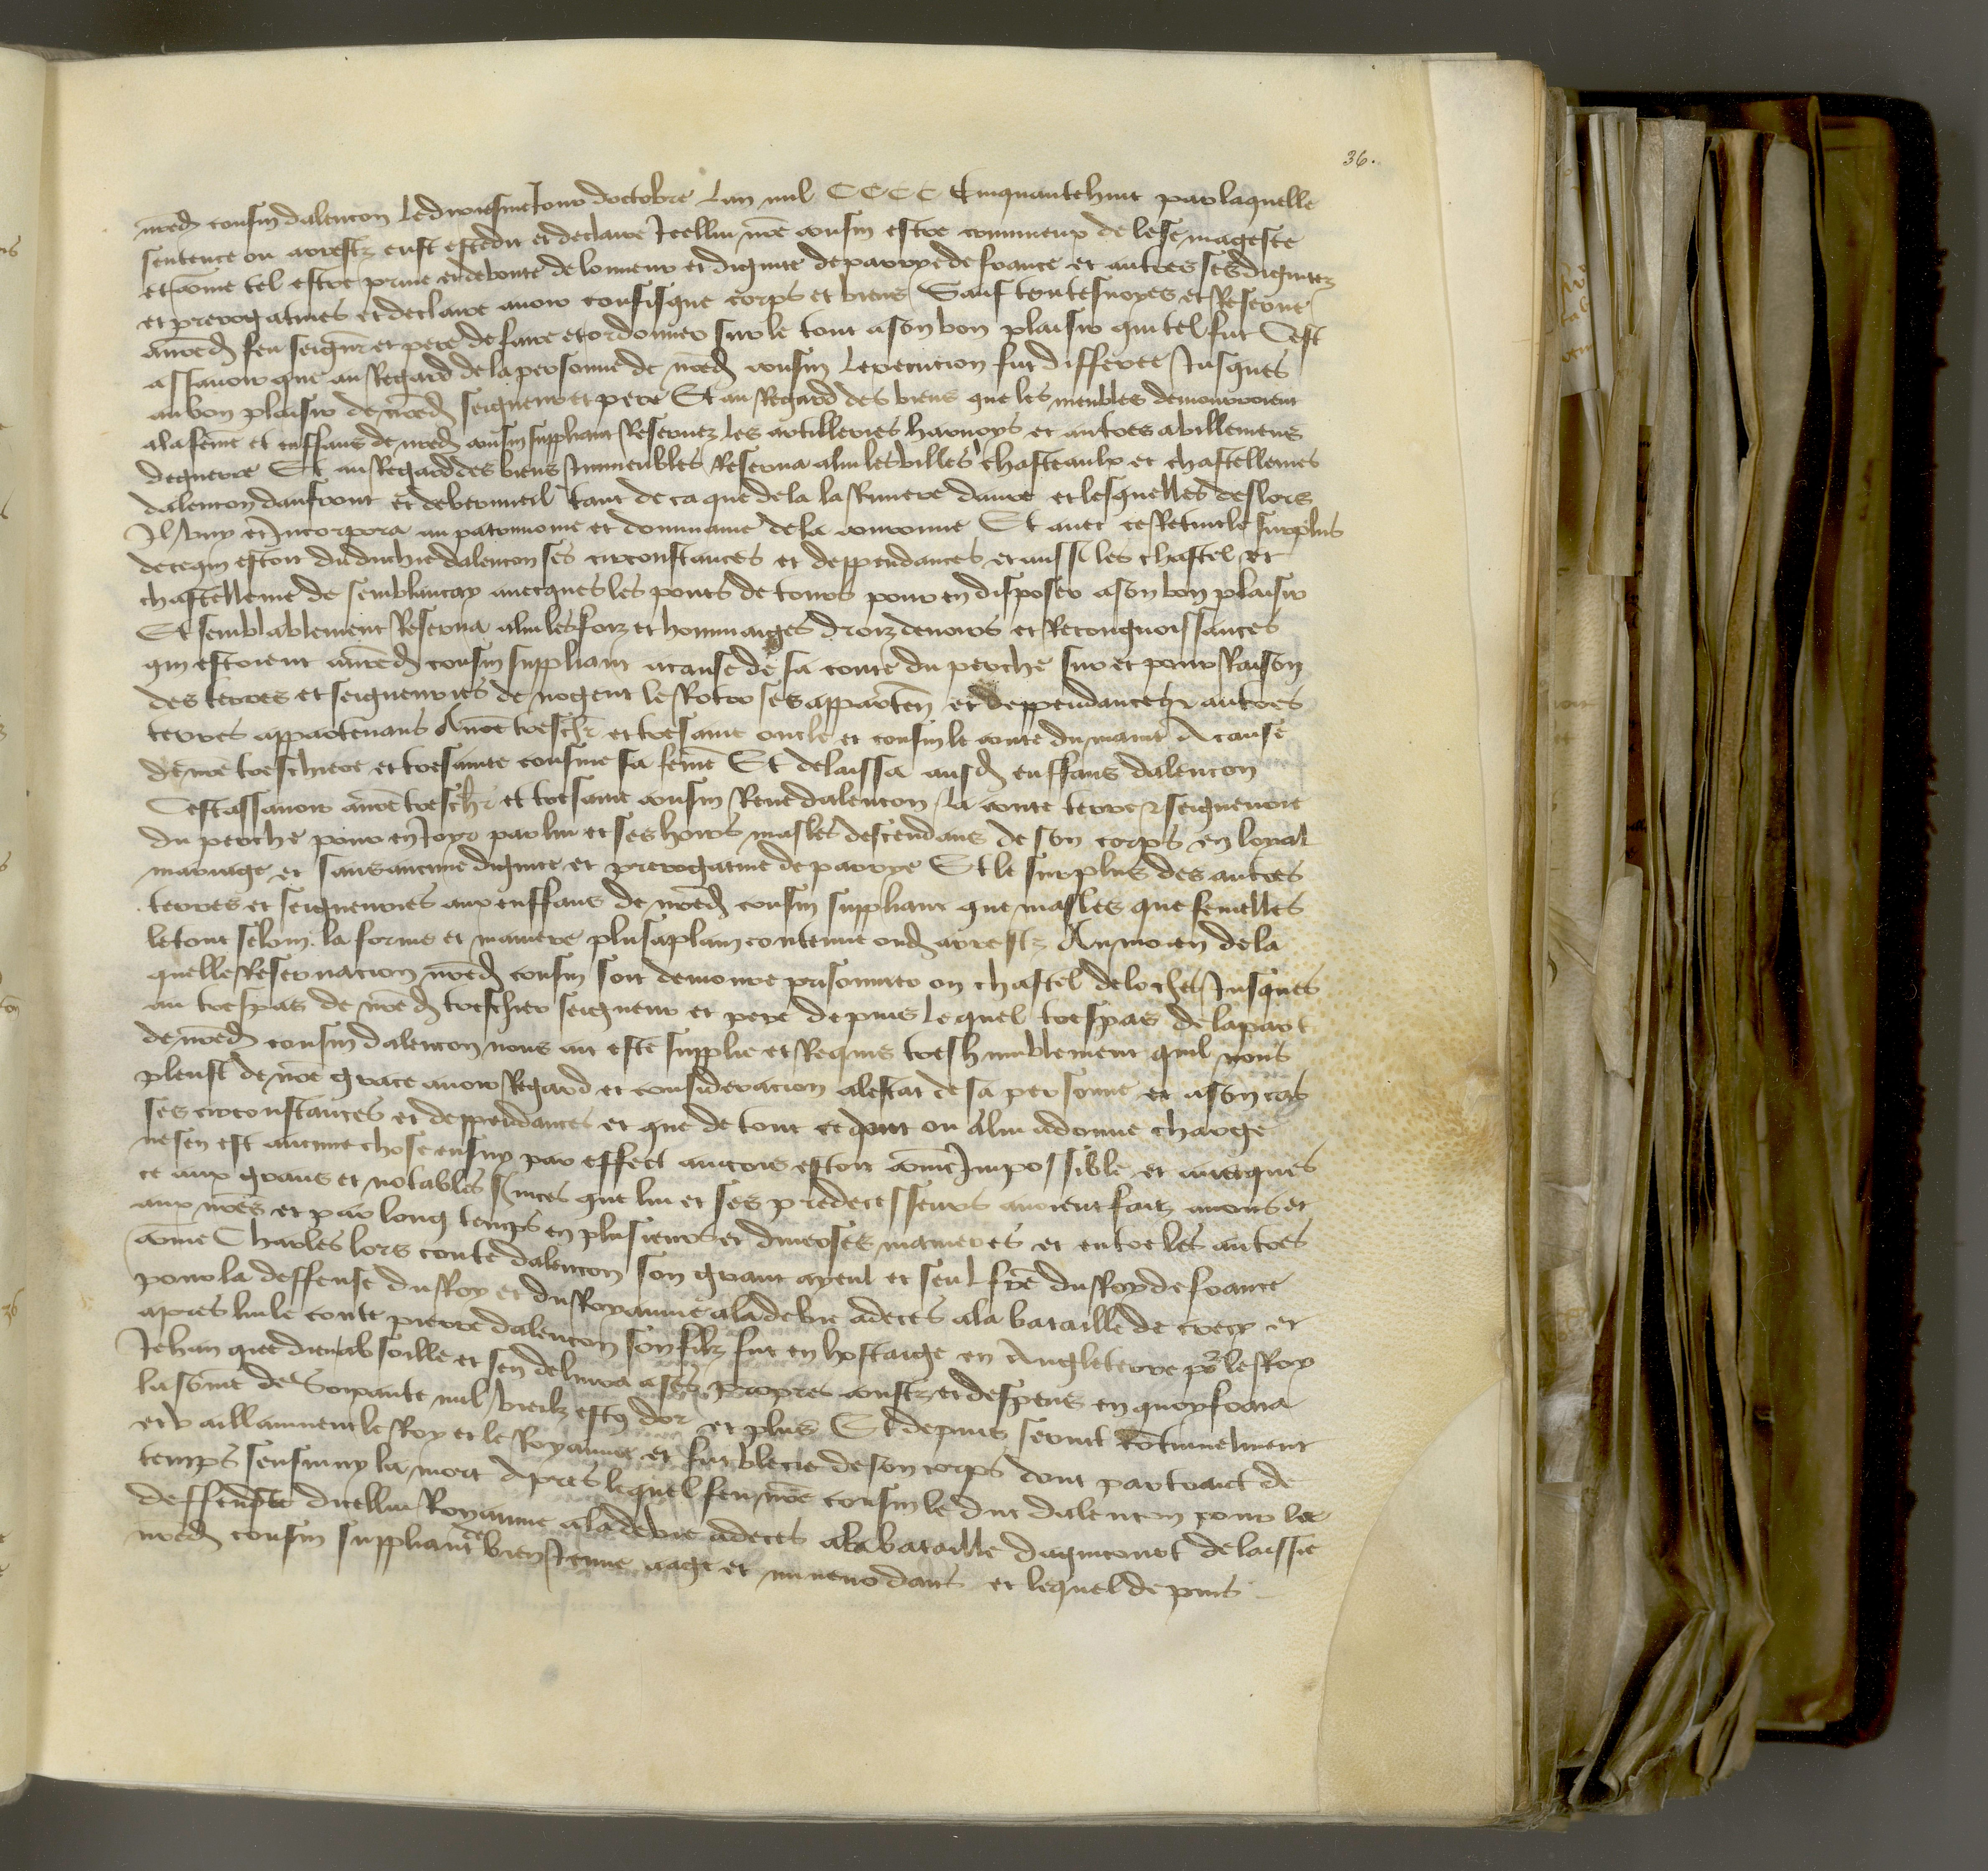 36.
nred cousin dalencon le dixiesme Jour doctobre Lan mil CCCC Cinquantehuit par laquelle
sentence ou arrestz eust este dit et declaire Icellui nre cousin estre crimineux de lese mageste
et comme tel estre prive et deboute de lonneur et dignite de parrye de france et autres ses dignitez
et prerogatives et declaire avoir confisque corps et biens Sauf toutesvoyes et Reserve
a nred feu seigneur et pere de faire et ordonner sur le tout a son bon plaisir qui tel fut Cest
assavoir que au Regard de la personne de nred cousin Lexecution fut differee Jusques
au bon plaisir de nred seigneur et pere Et au Regard des biens que les meubles demourroient
a la feme et enffans de nred cousin suppliant Reservez les artilleries harnoys et autres abillemens
de guerre Et au Regard des biens Immeubles Reserva a lui les villes chasteaulx et chastellenies
dalencon danfront et de verneuil tant de ca que de la la Riviere daure et lesquelles deslors
Il uny et Incorpora au patrimoine et dommaine de la couronne Et avec ce Retint le surplus
de ce qui estoit du duchie dalencon ses circonstances et deppendances et aussi les chastel et
chastellenie de semblancay avecques les pons de tours pour en disposer a son bon plaisir
Et semblablement Reserva a lui les foiz et hommaiges droiz devoirs et Recongnoissances
qui estoient a nred cousin suppliant a cause de sa conte du perche sur et pour Raison
des terres et seigneuries de nogent le Rotro ses apparten et deppendances et autres
terres appartenans A nre treschr et tresame oncle et cousin le conte du maine A cause
de nre treschiere et tresamee cousine sa feme Et delaissa ausd enffans dalencon
Cestassavoir a nre treschr et tresame cousin Rene dalencon la conte terre et seigneurie
du perche pour en Joyr par lui et ses hoirs masles descendans de son corps en loyal
mariage et sans aucune dignite et prerogative de parrye Et le surplus des autres
terres et seigneuries aux enffans de nred cousin suppliant que masles que femelles
le tout selon la forme et maniere plus a plain contenue oud arrestz Au moien de la
quelle Reservacion nred cousin soit demoure prisonnier ou chastel de loches Jusques
au trespas de nred treschier seigneur et pere depuis lequel trespas de la part
de nred cousin dalencon nous ait este supplie et Requis treshumblement quil nous
pleust de nre grace avoir Regard et consideracion a lestat de sa personne et a son cas
ses circonstances et deppendances et que de tout ce dont on a lui a donne charge
ne sen est aucune chose ensuy par effect aincois estoit come Impossible et avecques
ce aux grans et notables svices que lui et ses predecesseurs avoient faiz a nous et
aux nres et par long temps en plusieurs et diverses manieres et entre les autres
come Charles lors conte dalencon son grant ayeul et seul fre du Roy de france
pour la deffense du Roy et du Royaume ala de vie a deces a la bataille de crecy et
apres lui le conte pierre dalencon son filz fut en hostaige en Angleterre pr le Roy
Jehan que dieu absoille et sen delivra a ses propres coustz et despens en quoy fraia
la some de Soixante mil vielz escus dor et plus Et depuis servit continuelment
et vaillamment le Roy et le Royaume et fut blecie de son corps dont par traict de
temps sensuivy la mort Apres lequel feu nre cousin le duc dalencon pour la
deffense dicellui Royaume ala de vie a deces a la bataille dagincourt delaissie
nred cousin suppliant bien Jeune aage et mineur dans et lequel depuis